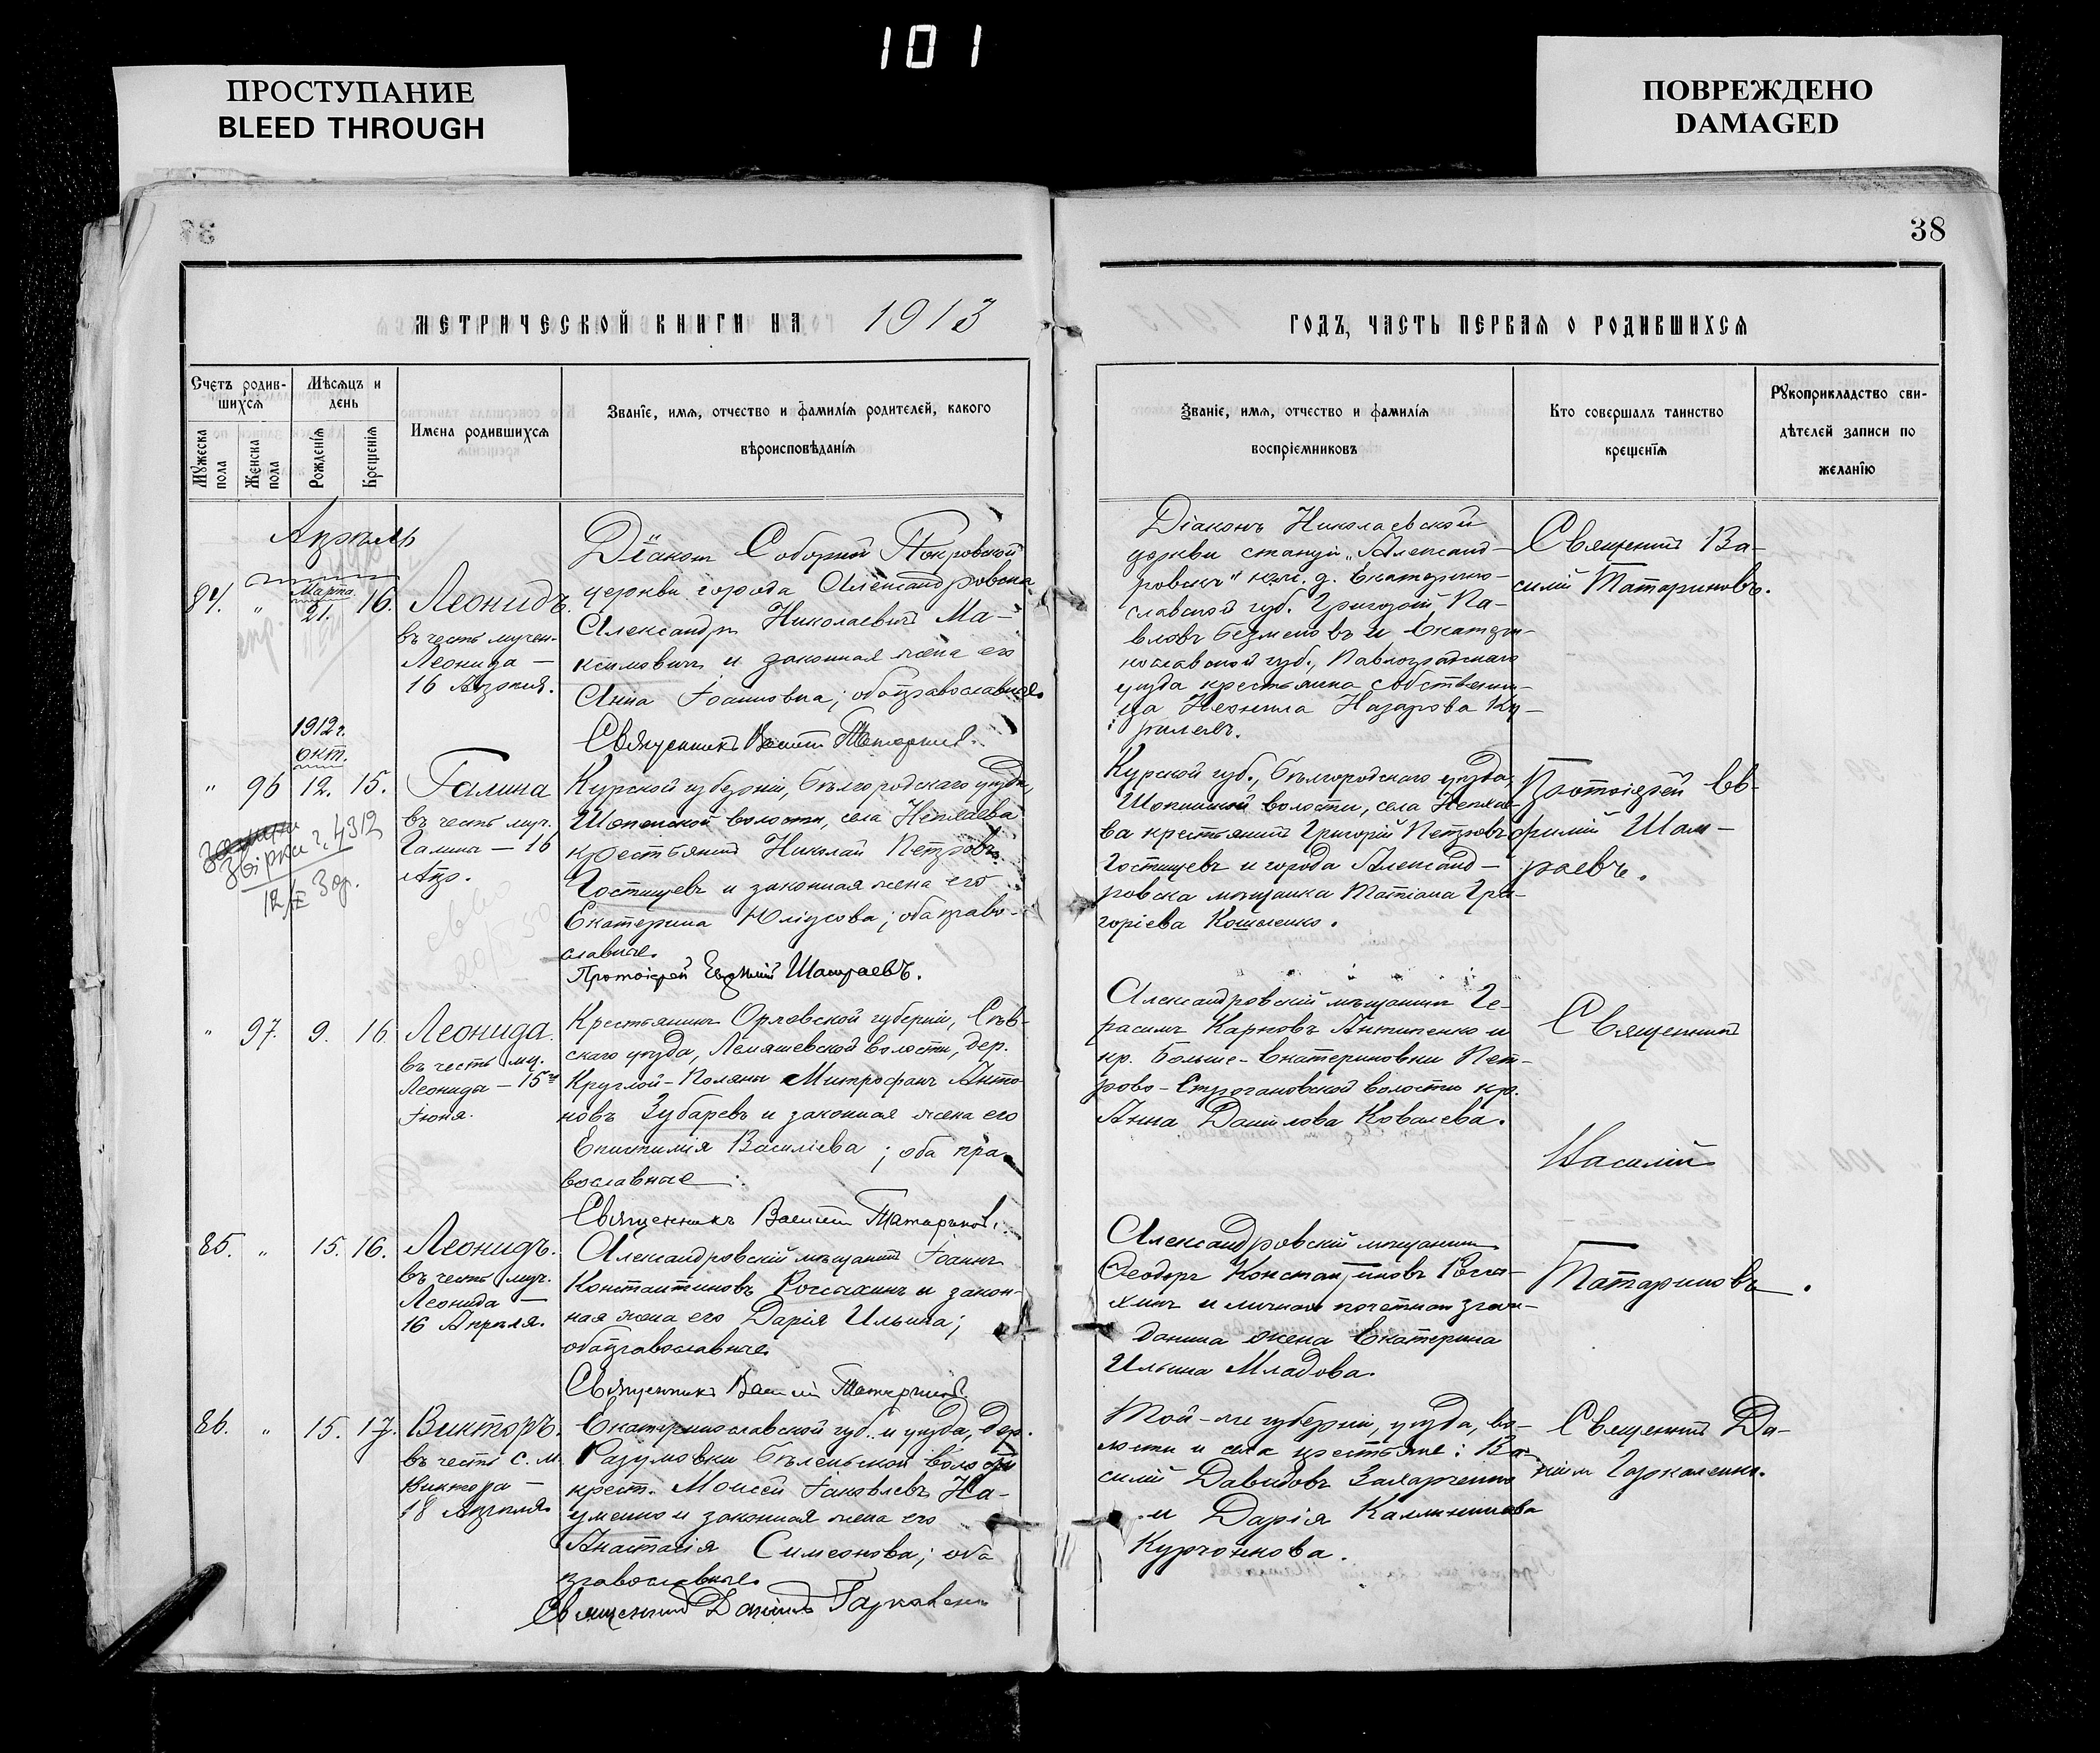 101
ПРОСТУПАНИЕ
BLEED THROUGH
ПОВРЕЖДЕНО
DAMAGED
38
МЕТРИЧЕСКОЙ КНИГИ НА 1913
ГОДЪ, ЧАСТЬ ПЕРВАЯ О РОДИВШИХСЯ
Счетъ родив-
шихся
Мужеска пола
Женска пола
Мѣсяцъ и
день
Рожденія
Крещенія
Имена родившихся
Званіе, имя, отчество и фамилія родителей, какого
вѣроисповѣданія
Званіе, имя, отчество и фамилія
воспріемниковъ
Кто совершалъ таинство
крещенія
Рукоприкладство сви-
дѣтелей записи по
желанію
Апрѣль
84. " Марта 21. 16.
Леонидъ.
въ честь мучен.
Леонида —
16 Апрѣля.
Діаконъ Соборной Покровской
церкви города Александровска
Александръ Николаевичъ Ма-
ксимовичъ и законная жена его
Анна Іоанновна; оба православные
Священникъ Василій Татариновъ.
Діаконъ Николаевской
церкви станціи „Александ-
ровскъ" юж. д. Екатерино-
славской губ. Григорій Па-
вловъ Безменовъ и Екатери-
нославской губ., Павлоградскаго
уѣзда крестьянина собственни-
ца Неонила Назарова Ку-
рилевъ.
Священникъ Ва-
силій Татариновъ.
1912 г.
окт.
" 96 12. 15.
Звірка
Галина
въ честь муч.
Галина — 16
Апр.
Курской губерніи, Бѣлгородскаго уѣзда,
Шопинской волости, села Непхаева
крестьянинъ Николай Петровъ
Гостищевъ и законная жена его
Екатерина Юліусова; оба право-
славные.
Протоіерей Евфимій Шамраевъ.
Курской губ., Бѣлгородскаго уѣзда,
Шопинской волости, села Непхае-
ва крестьянинъ Григорій Петровъ
Гостищевъ и города Александ-
ровска мѣщанка Татіана Гри-
горіева Кошленко.
Протоіерей Ев-
фимій Шам-
раевъ.
" 97. 9. 16
Леонида.
въ честь му.
Леониды — 15го
Іюня.
Крестьянинъ Орловской губерніи, Сѣв-
скаго уѣзда, Лемяшевской волости, дер.
Круглой-Поляны Митрофанъ Анто-
новъ Зубаревъ и законная жена его
Епистимія Василіева; оба пра-
вославные
Священникъ Василій Татариновъ.
Александровскій мѣщанинъ Ге-
расимъ Карповъ Антипенко и
кр. Больше-Екатериновки Пет-
рово-Строгановской волости кр.
Анна Данілова Ковалева.
Священникъ
Василій
Татариновъ.
85. " 15. 16.
Леонидъ.
въ честь муч.
Леонида —
16 Апрѣля.
Александровскій мѣщанинъ Іоаннъ
Константиновъ Россихинъ и закон-
ная жена его Дарія Ильина;
оба православные
Священникъ Василій Татариновъ
Александровскій мѣщанинъ
Ѳеодоръ Константиновъ Росси-
хинъ и личнаго почетнаго граж-
данина жена Екатерина
Ильина Младова.
86. " 15. 17.
Викторъ.
въ честь с. м.
Виктора —
18 Апрѣля
Екатеринославской губ. и уѣзда, дер.
Разумовки Бѣленьской волости
крест. Моисей Іаковлевъ На-
уменко и законная жена его
Анастасія Симеонова; оба
православные
Священникъ Даніилъ Гаркавенко
Той-же губерніи, уѣзда, во-
лости и села крестьяне: Ва-
силій Давидовъ Захарченко
и Дарія Каллиникова
Курчонкова.
Священникъ Да-
ніилъ Гаркавенко.